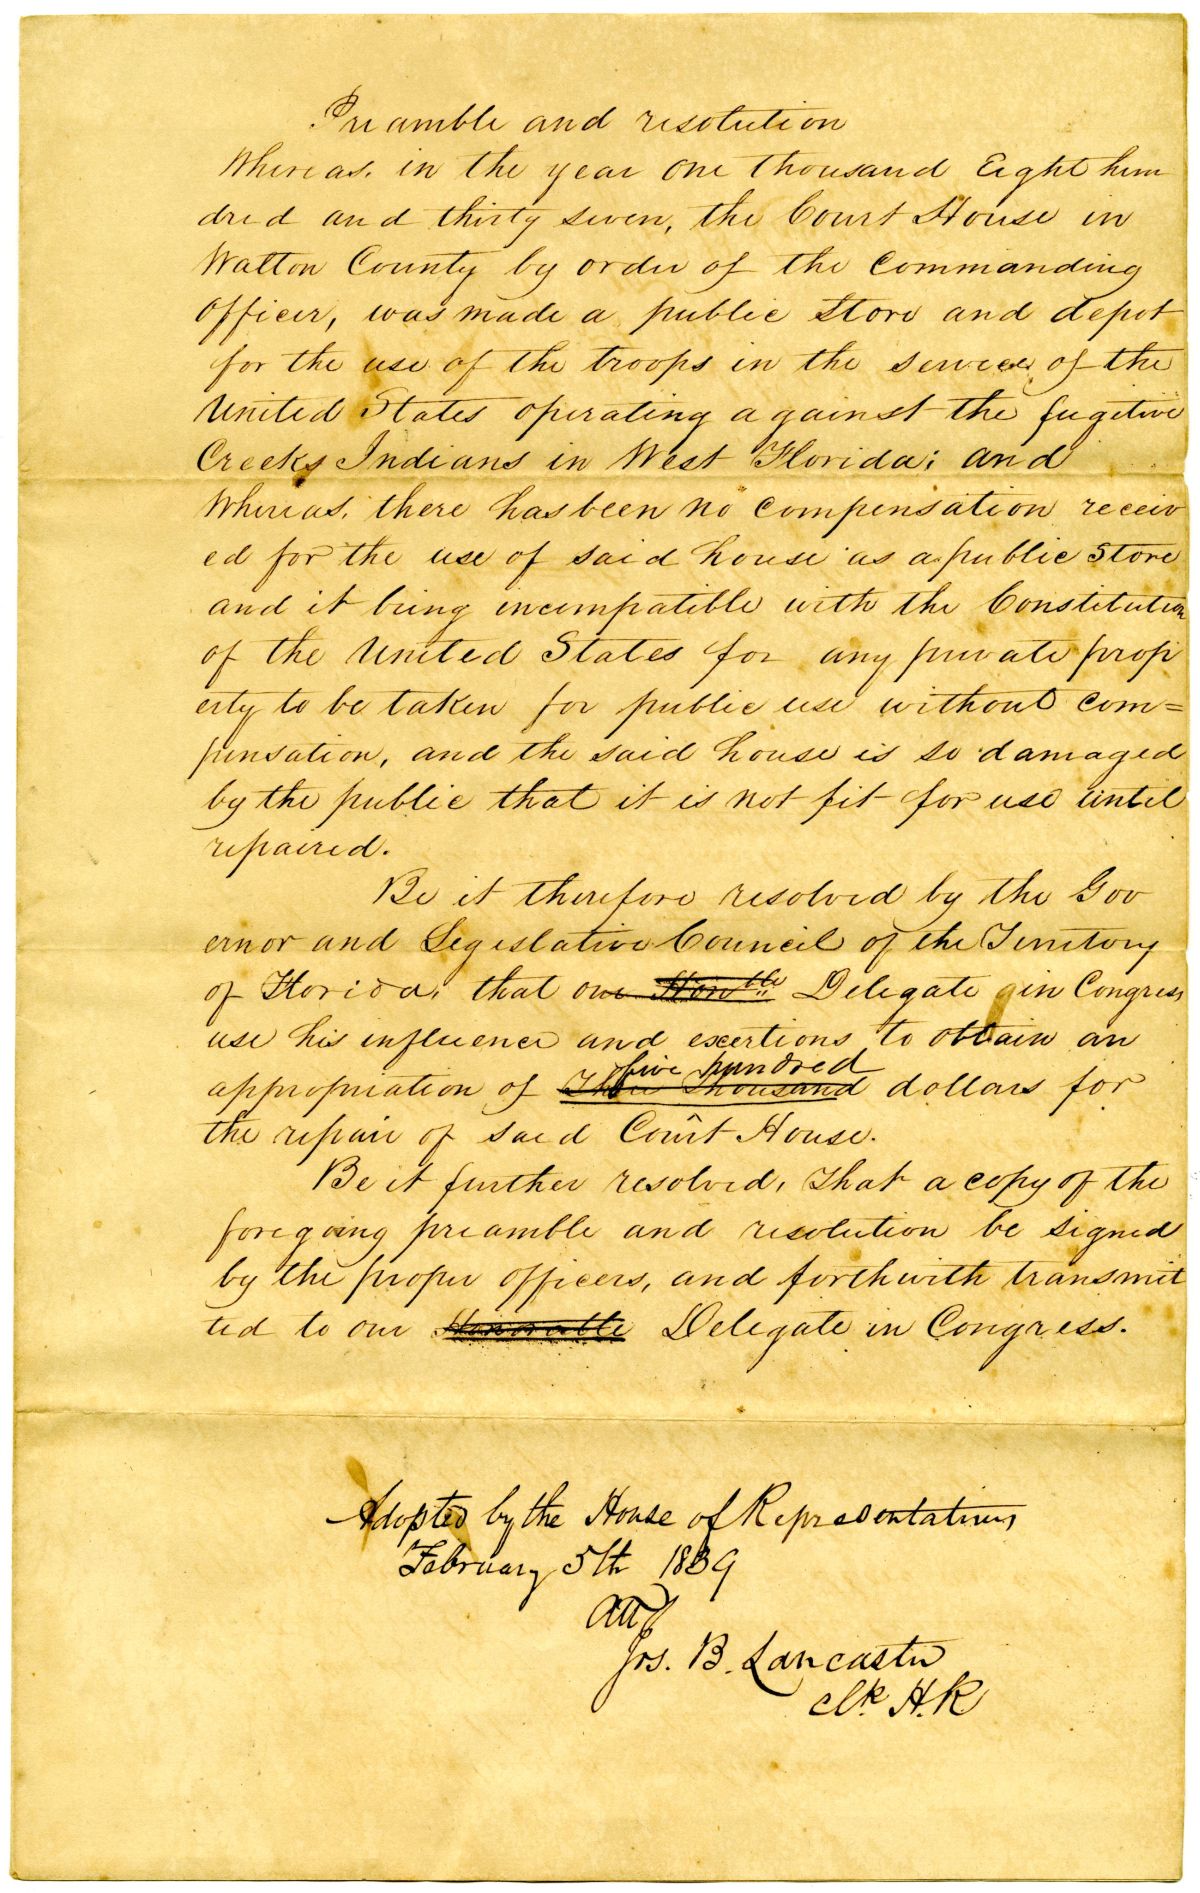 Preamble and resolution
Whereas, in the year one thousand Eight hun
dred and thirty seven, the Court House in
Walton County by order of the Commanding
officer, was made a public store and depot
for the use of the troops in the service of the
United States operating against the fugitive
Creeks Indians in West Florida; and
Whereas, there has been no compensation receiv
ed for the use of said house as a public store
and it being incompatible with the Constitution
of the United States for any private prop
erty to be taken for public use without com=
pensation, and the said house is so damaged
by the public that it is not fit for use until
repaired.
Be it therefore resolved by the Gov
ernor and Legislative Council of the Territory
of Florida, that our Honble Delegate in Congress
use his influence and exertions to obtain an
five hundred
appropriation of Three Thousand dollars for
the repair of said Court House.
Be it further resolved, That a copy of the
foregoing preamble and resolution be signed
by the proper officers, and forthwith transmit
ted to our Honorable Delegate in Congress.
Adopted by the House of Representatives
February 5th 1839
Att
Jos. B. Lancaster
Clk H.R